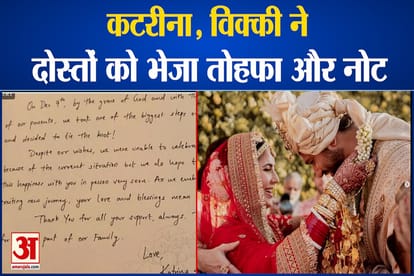 कटरीना, विक्की ने
दोस्तों को भेजा तोहफा और नोट
On Dec 9th, by the grace of God and with th
of our parents, we took one of the biggest steps o
and decided to tie the knot!
Despite our wishes, we were unable to celebra
because of the current situation but we do hope t
this happiness with you in person very soon. As we emb
exciting new journey, your love and blessings mean
Thank You for all your support, always.
part of our Family.
Love,
Katrina
अ
amarujala.com